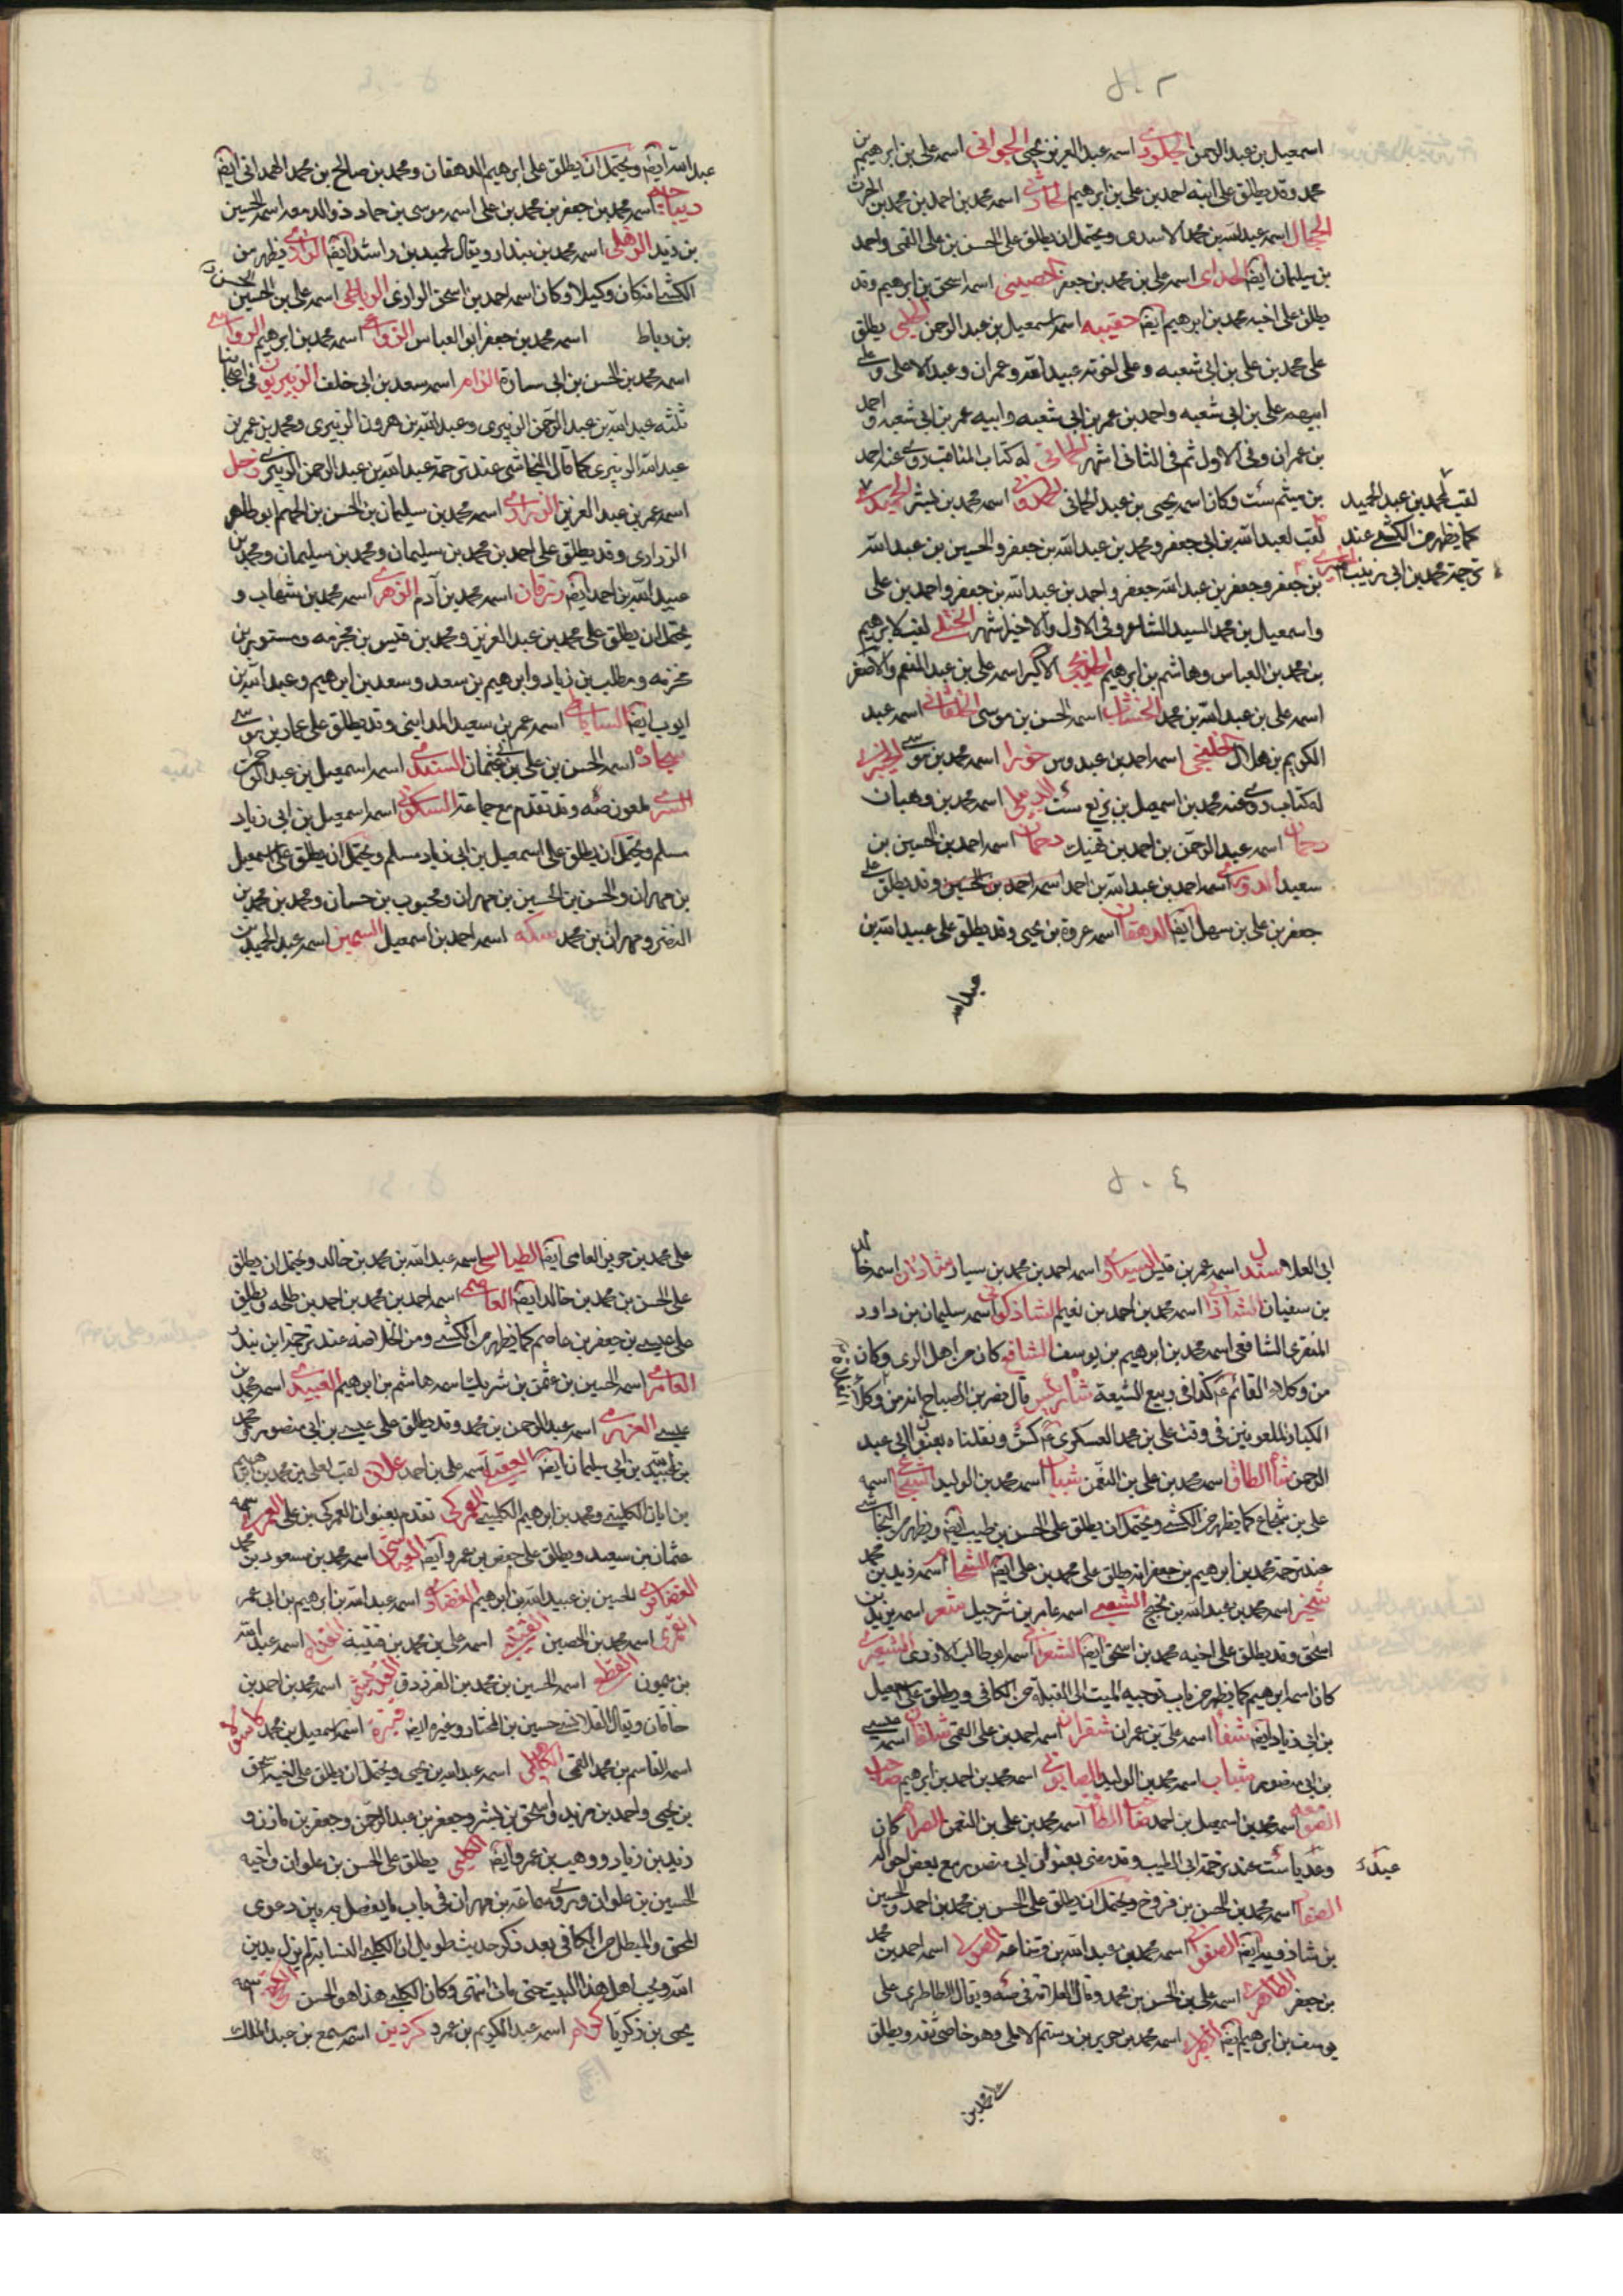 ٥٠٢
اسمعيل بن عبد الرحمن الجلودي اسمه عبد العزيز بن يحيى الجواني اسمه علي بن ابرهيم بن
محمد وقد يطلق على ابنه احمد بن علي بن ابرهيم اسمه محمد بن احمد بن محمد بن الحرث
الجمال اسمه عبد الله بن محمد الاسدى ويحتمل ان يطلق على الحسن بن علي القمى واحمد
بن سليمان ايضا اسمه علي بن محمد بن جعفر الحصينى اسمه اسحق بن ابرهيم وقد
يطلق على اخيه محمد بن ابرهيم ايضا حقيبه اسمه اسمعيل بن عبد الرحمن الحلبى يطلق
على محمد بن علي بن ابي شعبه وعلى اخوته عبيد الله وعمران وعبد الاعلى وعلى
ابيهم علي بن ابي شعبه واحمد بن عمر بن ابي شعبه وابيه عمر بن ابي شعبه واحمد
بن عمران وفى الاول ثم فى الثانى اشهر الحمانى له كتاب المناقب روى عنه احمد
بن ميثم ست وكان اسمه يحيى بن عبد الحمانى اسمه محمد بن بشر
لقب لمحمد بن عبد الحميد
كما يظهر من الكشي عند
ترجمة محمد بن ابى زينب
لقب لعبد الله بن ابي جعفر ومحمد بن عبد الله بن جعفر والحسين بن عبد الله
بن جعفر وجعفر بن عبد الله جعفر واحمد بن عبد الله بن جعفر واحمد بن علي
واسمعيل بن محمد السيد الشاعر وفى الاول والاخير اشهر الختلي لقب لابرهيم
بن محمد بن العباس وهاشم بن ابرهيم الاكبر اسمه علي بن عبد المنعم والاصغر
اسمه علي بن عبد الله بن محمد الخشاب اسمه الحسن بن موسى الخلقاني اسمه عبد
الكريم بن هلال الخليجى اسمه احمد بن عبدوس خورا اسمه محمد بن موسى
له كتاب روى عنه محمد بن اسمعيل بن بزيع ست اسمه محمد بن وهبان
دحمان اسمه عبد الرحمن بن احمد بن نهيك دحمان اسمه احمد بن الحسين بن
سعيد اسمه احمد بن عبد الله بن احمد اسمه احمد بن الحسين وقد يطلق على
جعفر بن علي بن سهل ايضا الدهقان اسمه عروة بن يحيى وقد يطلق على عبيد الله بن
عبد الله
عبد الله ايضا ويحتمل ان يطلق على ابرهيم الدهقان ومحمد بن صالح بن محمد الهمدانى ايضا
ديباجه اسمه محمد بن جعفر بن محمد بن علي اسمه موسى بن حماد ذوالدمعه اسمه الحسين
بن زيد الرهنى اسمه محمد بن بندار ويقال لحميد بن راشد ايضا يظهر من
الكشي انه كان وكيلا وكان اسمه احمد بن اسحق الرازى الرباطى اسمه علي بن الحسن
بن رباط اسمه محمد بن جعفر ابو العباس اسمه محمد بن ابرهيم الرواسي
اسمه محمد بن الحسن بن ابى سارة الزام اسمه سعد بن ابي خلف الزبيريون فى اصحابنا
ثلثه عبد الله بن عبد الرحمن الزبيرى وعبد الله بن هرون الزبيرى ومحمد بن عمر بن
عبد الله الزبيرى كما قال النجاشى عند ترجمة عبد الله بن عبد الرحمن الزبيرى زحل
اسمه عمر بن عبد العزيز الزرارى اسمه محمد بن سليمان بن الحسن بن الجهم ابو طاهر
الزرارى وقد يطلق على احمد بن محمد بن سليمان ومحمد بن سليمان ومحمد بن
عبيد الله بن احمد ايضا زرقان اسمه محمد بن آدم الزهرى اسمه محمد بن شهاب و
يحتمل ان يطلق على محمد بن عبد العزيز ومحمد بن قيس بن مخرمه ومستور بن
مخرمه ومطلب بن زياد وابرهيم بن سعد وسعد بن ابرهيم وعبد الله بن
ايوب ايضا الساباطى اسمه عمر بن سعيد المداينى وقد يطلق على عمار بن موسى
سجاده اسمه الحسن بن علي بن ابى عثمان السندى اسمه اسمعيل بن عبد الرحمن
السرى ملعون ضه وقد تقدم مع جماعة السكونى اسمه اسمعيل بن ابى زياد
مسلم ويحتمل ان يطلق على اسمعيل بن ابى زياد مسلم ويحتمل ان يطلق على اسمعيل
بن مهران والحسن بن الحسين بن مهران ومحبوب بن حسان ومحمد بن محمد بن
النضر ومهران بن محمد سمكه اسمه احمد بن اسمعيل السمين اسمه عبد الحميد بن
٥٠٤
ابى العلا سندل اسمه عمر بن قيس السيارى اسمه احمد بن محمد بن سيار شاذان اسمه خالد
بن سفيان الشاذانى اسمه محمد بن احمد بن نعيم الشاذكونى اسمه سليمان بن داود
المنقرى الشافعى اسمه محمد بن ابرهيم بن يوسف كان من اهل الرى وكان
من وكلاء القائم كذا فى ربيع الشيعة قال نصر بن الصباح انه من وكلا
الكبار الملعونين فى وقت على بن محمد العسكرى كش ونقلناه بعنوان ابي عبد
الرحمن شاه الطاق اسمه محمد بن علي بن النعمن شباب اسمه محمد بن الوليد اسمه
علي بن شجاع كما يظهر من الكشي ويحتمل ان يطلق على الحسن بن طيب ايضا ويظهر من النجاشي
عند ترجمة محمد بن ابرهيم بن جعفر انه يطلق على محمد بن علي ايضا الشحام اسمه زيد بن محمد
اسمه محمد بن عبد الله بن نجيح الشعبى اسمه عامر بن شرحبيل شعر اسمه يزيد بن
اسحق وقد يطلق على اخيه محمد بن اسحق ايضا الشعرانى اسمه ابو طالب الازدى الشعيرى
كان اسمه ابرهيم كما يظهر من باب توجيه الميت الى القبلة من الكافى ويطلق على اسمعيل
بن ابى زياد ايضا اسمه علي بن عمران شقران اسمه احمد بن علي القمى شلقان اسمه عيسى
بن ابى منصور شباب اسمه محمد بن الوليد الصابونى اسمه محمد بن احمد بن ابرهيم صاحب
الصومعه اسمه محمد بن اسمعيل بن احمد صاحب الطاق اسمه محمد بن علي بن النعمن الصرام كان
وعديا ست عند ترجمة ابى الطيب وقد مضى بعنوان ابى منصور مع بعض احواله
عبدك
الصفار اسمه محمد بن الحسن بن فروخ ويحتمل ان يطلق على الحسن بن محمد بن احمد والحسين
بن شاذويه ايضا الصفوانى اسمه محمد بن عبد الله بن قضاعه الصولى اسمه احمد بن محمد
بن جعفر الطاطرى اسمه علي بن الحسن بن محمد وقال العلامة فى ضه ويقال الطاطرى على
يوسف بن ابرهيم ايضا الطبرى اسمه محمد بن جرير بن رستم الاملى وهو خاصى ثقه ويطلق
على محمد بن
على محمد بن جرير العامى ايضا الطيالسى اسمه عبد الله بن محمد بن خالد ويحتمل ان يطلق
على الحسن بن محمد بن خالد ايضا العاصمى اسمه احمد بن محمد بن احمد بن طلحه ويطلق
على عيسى بن جعفر بن عاصم كما يظهر من الكشي ومن الخلاصه عند ترجمة ابن بند
العامرى اسمه الحسين بن عثمن بن شريك اسمه هاشم بن ابرهيم العبيدى اسمه محمد بن
عيسى العزرمى اسمه عبد الرحمن بن محمد وقد يطلق على عيسى بن ابى منصور ومحمد
بن عبيد الله بن ابى سليمان ايضا العقيقى اسمه علي بن احمد علان لقب لعلى بن محمد بن ابرهيم
بن ابان الكلينى ومحمد بن ابرهيم الكلينى العمركى تقدم بعنوان العمركى بن علي العمرى اسمه
عثمان بن سعيد ويطلق على حفص بن عمرو ايضا العياشى اسمه محمد بن مسعود بن محمد
الغضائرى الحسين بن عبيد الله بن ابرهيم الغفارى اسمه عبد الله بن ابرهيم بن ابى عمر
اسمه محمد بن الحصين القتيبى اسمه علي بن محمد بن قتيبة القداح اسمه عبد الله
بن ميمون القطعى اسمه الحسين بن محمد بن الفرزدق اسمه محمد بن احمد بن
خاقان ويقال القلانسى حسين بن المختار وغيره ايضا قنبرة اسمه اسمعيل بن محمد كاسولا
اسمه القاسم بن محمد القمى الكاهلى اسمه عبد الله بن يحيى ويحتمل ان يطلق على اخيه اسحق
بن يحيى واحمد بن مزيد واسحق بن بشر وجعفر بن عبد الرحمن وجعفر بن مازن و
زيد بن زياد ووهيب بن عمرو ايضا الكلبى يطلق على الحسن بن علوان واخيه
الحسين بن علوان وروى سماعة بن مهران فى باب ما يفصل به بين دعوى
المحق والمبطل من الكافى بعد ذكر حديث طويل ان الكلبى النسابة لم يزل يدين
الله ويحب اهل هذا البيت حتى مات انتهى وكان الكلبى هذا هو الحسن اسمه
يحيى بن زكريا كرام اسمه عبد الكريم بن عمرو كردين اسمه مسمع بن عبد الملك